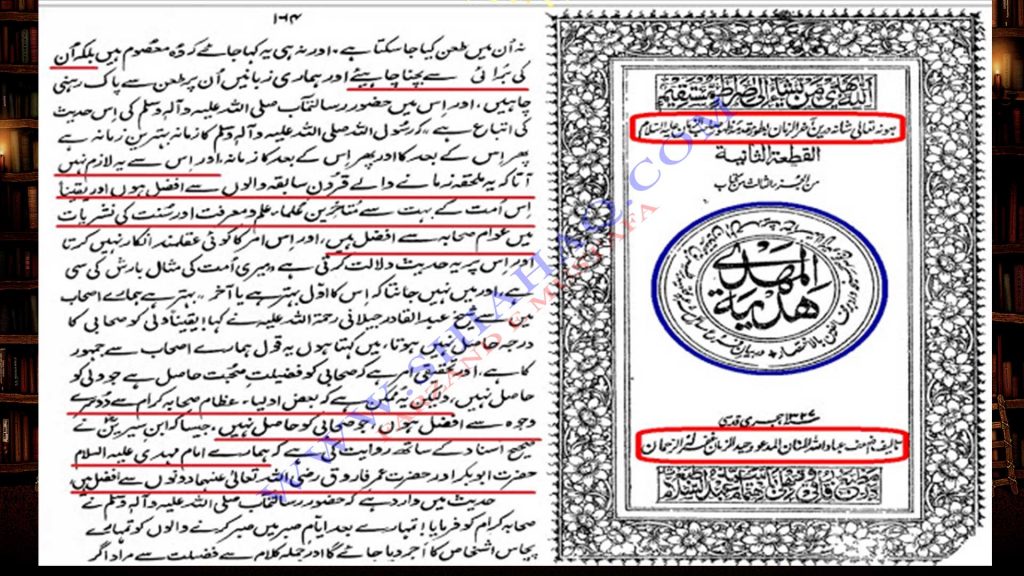 ۱۶۴
نہ اُن میں طعن کیا جا سکتا ہے، اور نہ ہی یہ کہا جائے کہ وہ معصوم ہیں بلکہ اُن
کی بُرائی سے بچنا چاہیئے اور ہماری زبانیں اُن پر طعن سے پاک رہنی
چاہیں، اور اِس میں حضور رسالتمآب صلی اللہ علیہ وآلہٖ وسلم کی اِس حدیث
کی اتباع ہے "کہ رسول اللہ صلی اللہ علیہ وآلہٖ وسلم کا زمانہ بہترین زمانہ ہے
پھر اِس کے بعد کا اور پھر اِس کے بعد کا زمانہ، اور اِس سے یہ لازم نہیں
آتا کہ یہ ملحقہ زمانے والے قرونِ سابقہ والوں سے افضل ہوں اور یقیناً
اِس اُمت کے بہت سے متاخرین علماء، علم و معرفت اور سُنت کی نشریات
میں عوام صحابہ سے افضل ہیں، اور اِس امر کا کوئی عقلمند انکار نہیں کرتا
اور اس پر یہ حدیث دلالت کرتی ہے "میری اُمت کی مثال بارش کی سی
ہے، اور میں نہیں جانتا کہ اِس کا اوّل بہتر ہے یا آخر" بہتر ہے ہمارے اصحاب
میں سے شیخ عبدالقادر جیلانی رحمۃ اللہ علیہ نے کہا! یقیناً ولی کو صحابی کا
درجہ حاصل نہیں ہوتا، میں کہتا ہوں یہ قول ہمارے اصحاب سے جمہور
کا ہے، اور تحقیقی امر ہے کہ صحابی کو فضیلتِ صحبت حاصل ہے جو ولی کو
حاصل نہیں، ولیکن یہ ممکن ہے کہ بعض اولیاء عظام صحابہ کرام سے دوسرے
وجوہ سے افضل ہوں، جو صحابی کو حاصل نہیں، جیسا کہ ابن سیرین نے
صحیح اسناد کے ساتھ روایت کی ہے کہ ہمارے امام مہدی علیہ السلام
حضرت ابوبکر اور حضرت عمر فاروق رضی اللہ تعالیٰ عنہما دونوں سے افضل ہیں
حدیث میں وارد ہے کہ حضور رسالتمآب صلی اللہ علیہ وآلہٖ وسلم نے
صحابہ کرام کو فرمایا! تمہارے بعد ایامِ صبر میں صبر کرنے والوں کو تمہارے
پچاس اشخاص کا اجر دیا جائے گا اور جملہ کلام سے فضیلت سے مراد اگر
اللہ یھدی من یشاء الی صراط مستقیم
القطعة الثانیة
من الجزء الثالث من کتاب
ھدیة المھدی
۱۳۲۴ ہجری قدسی
WWW.SHIAHAQ.COM
FARZAND E MUSTAFA